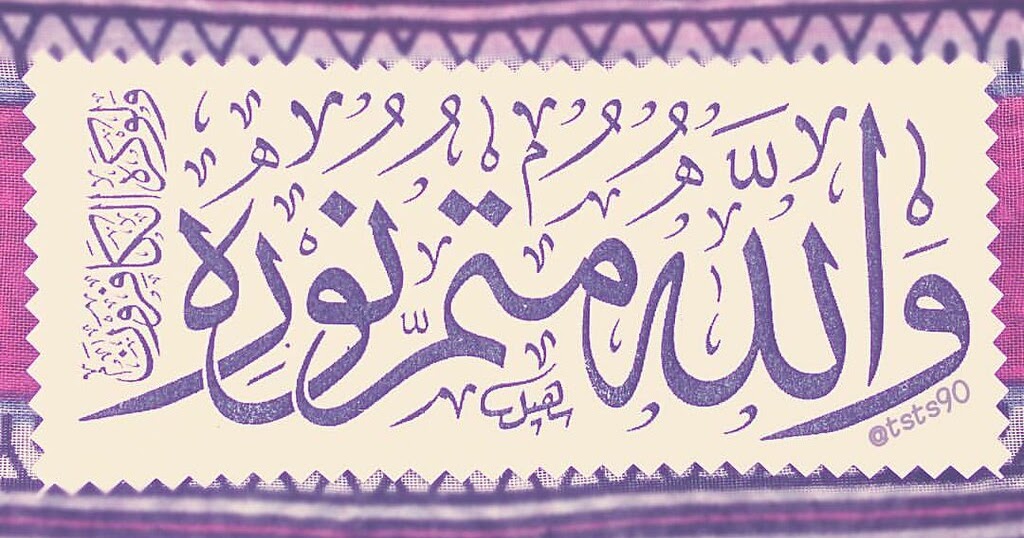 وَاللَّهُ مُتِمُّ نُورِهِ
وَلَوْ كَرِهَ الْكَافِرُونَ
@tsts90